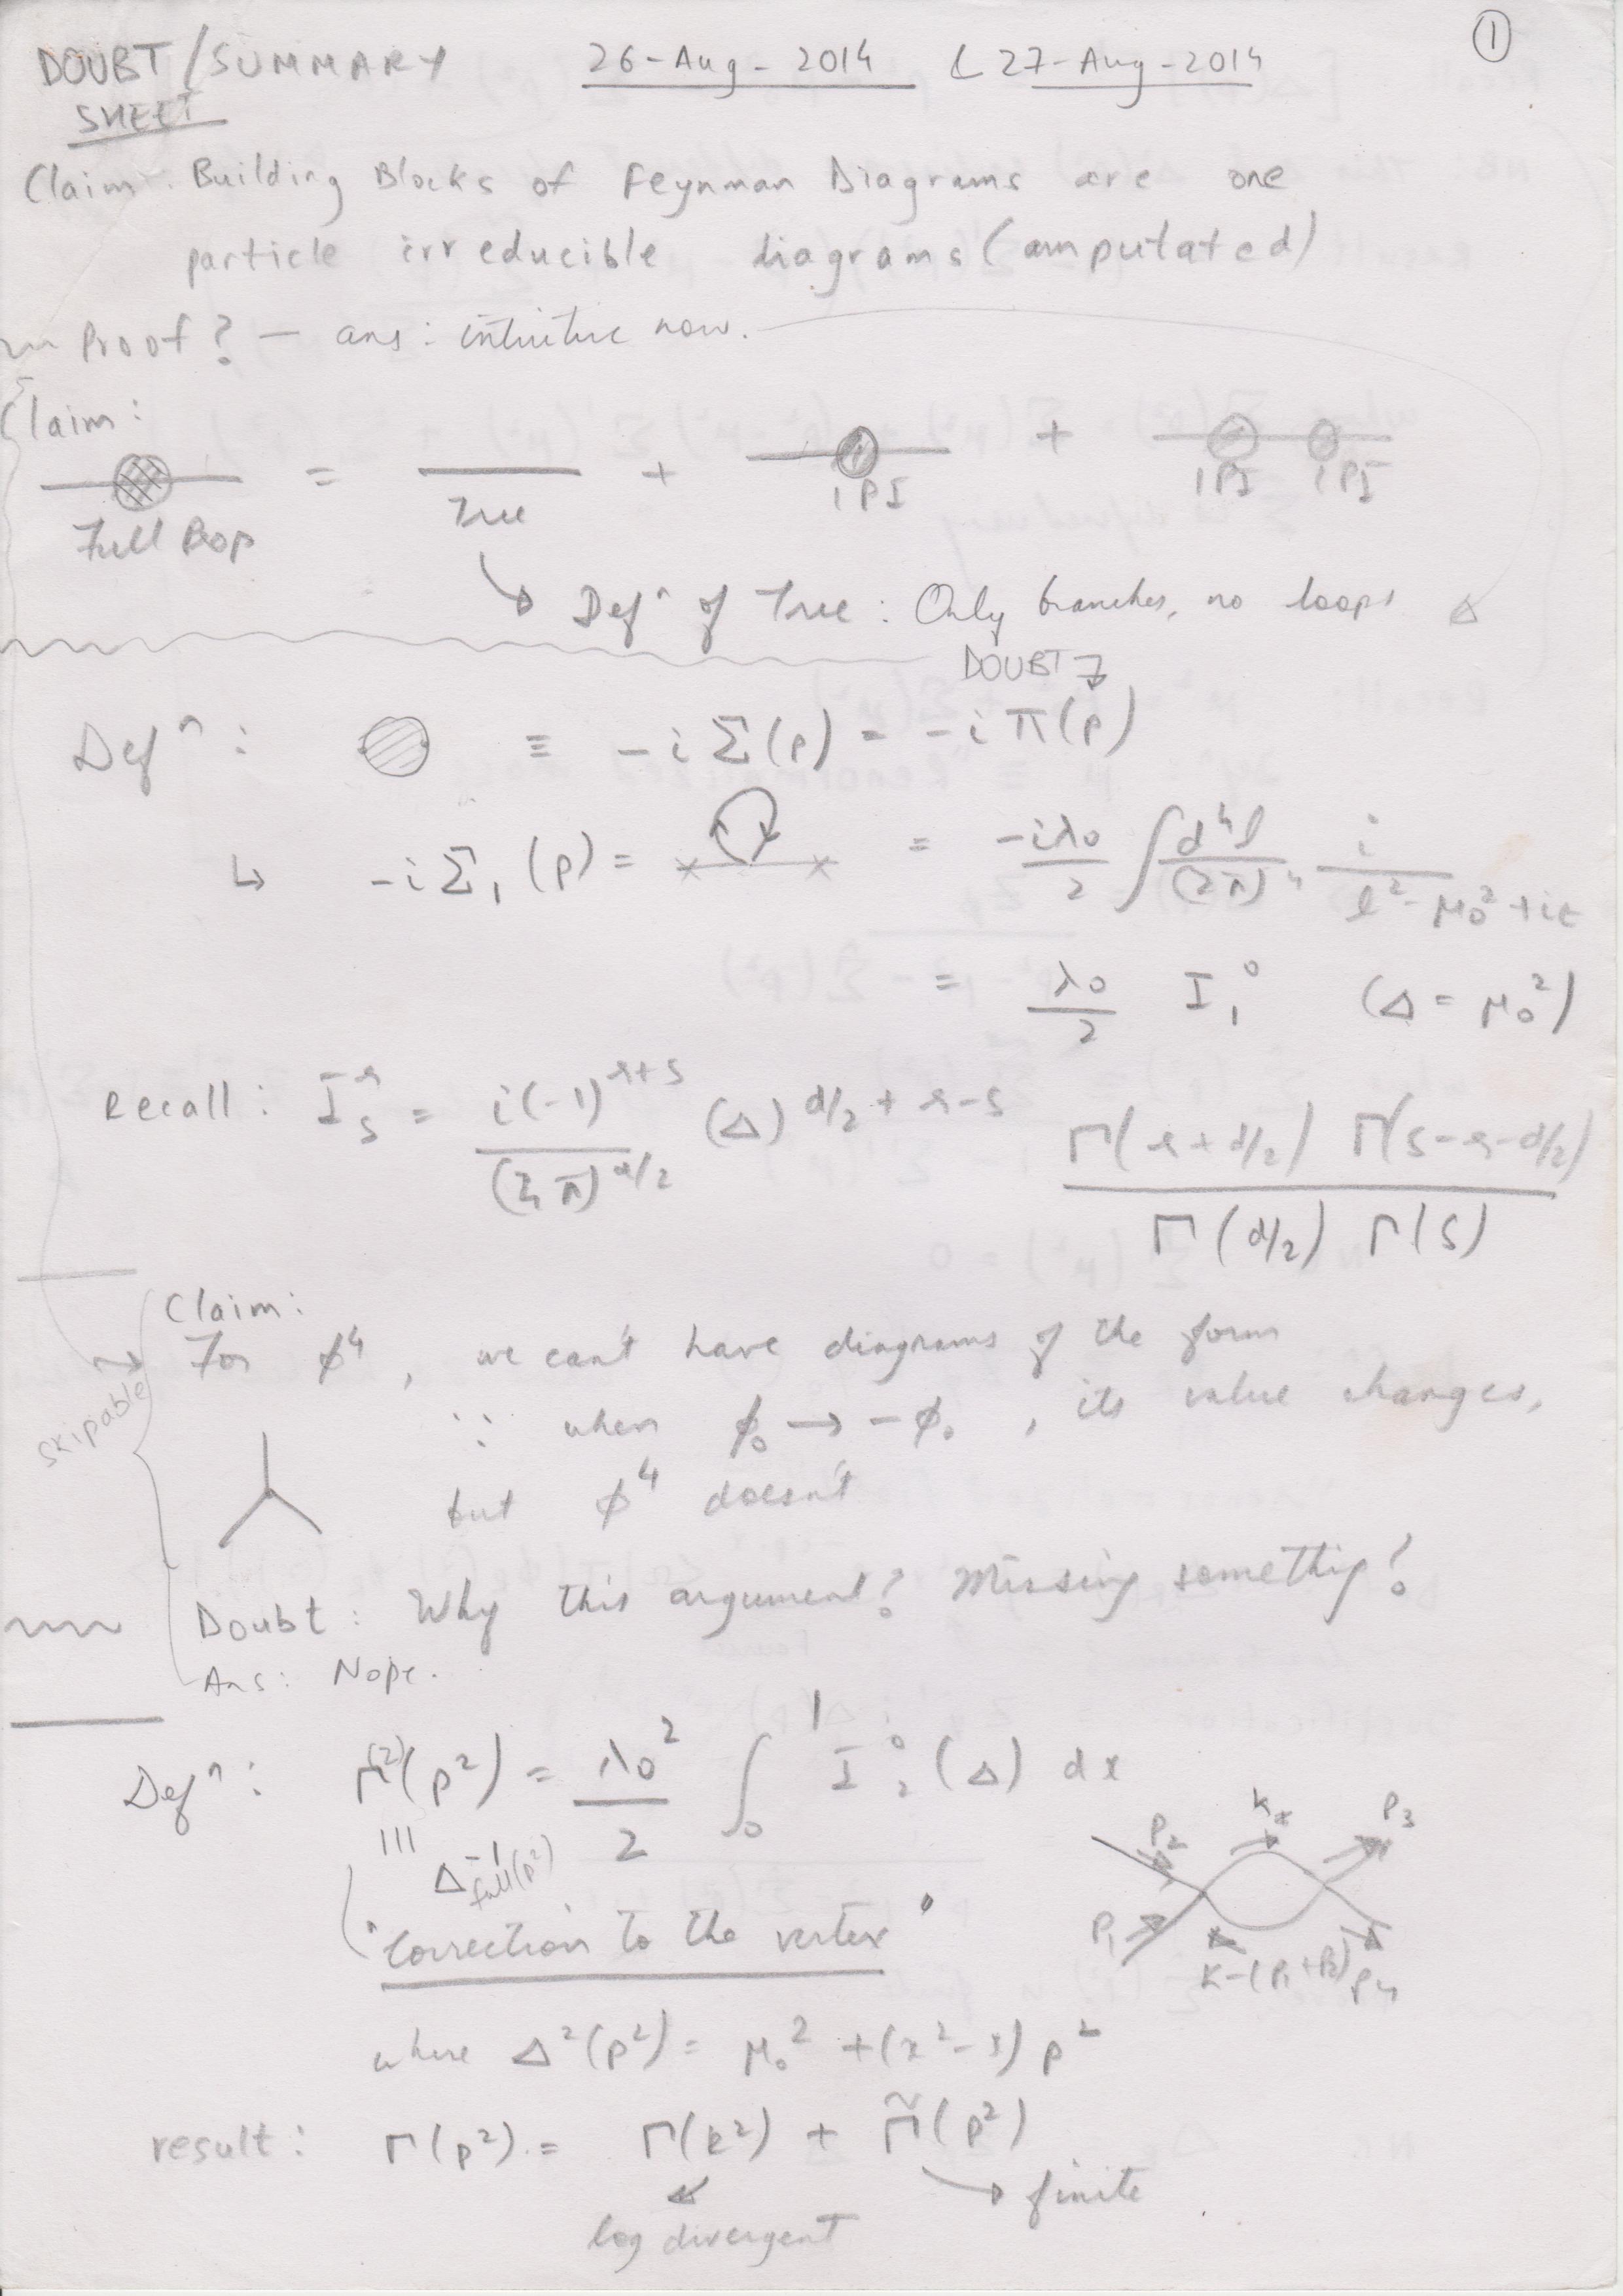 DOUBT/SUMMARY SHEET 26-Aug-2014 27-Aug-2014 ①
Claim: Building Blocks of Feynman Diagrams are one
particle irreducible diagrams (amputated)
Proof? — ans: intuitive now.
Claim:
= + +
Full Prop Tree 1PI 1PI 1PI
↳ Defⁿ of Tree: Only branches, no loops
DOUBT
Defⁿ: ≡ -iΣ(p) = -iπ(p)
↳ -iΣ₁(p) = = -iλ₀/2 ∫ d⁴l/(2π)⁴ i/(l²-μ₀²+iε)
= λ₀/2 I₁⁰ (Δ = μ₀²)
Recall: I_s^r = i(-1)^(r+s)/(4π)^(d/2) (Δ)^(d/2+r-s) Γ(r+d/2) Γ(s-r-d/2) / Γ(d/2) Γ(s)
Claim:
For ϕ⁴, we can't have diagrams of the form
skipable
∵ when ϕ₀ → -ϕ₀, its value changes,
but ϕ⁴ doesn't
Doubt: Why this argument? Missing somethig?
Ans: Nope.
Defⁿ: Γ⁽²⁾(p²) = λ₀²/2 ∫₀¹ I₂⁰(Δ) dx
≡ Δ⁻¹_full(p²)
"Correction to the vertex"
P₂ P₃
P₁ K-(P₁+P₂) P₄
where Δ²(p²) = μ₀² + (x²-x) p²
result: Γ(p²) = Γ(k²) + Γ̃(p²)
log divergent finite